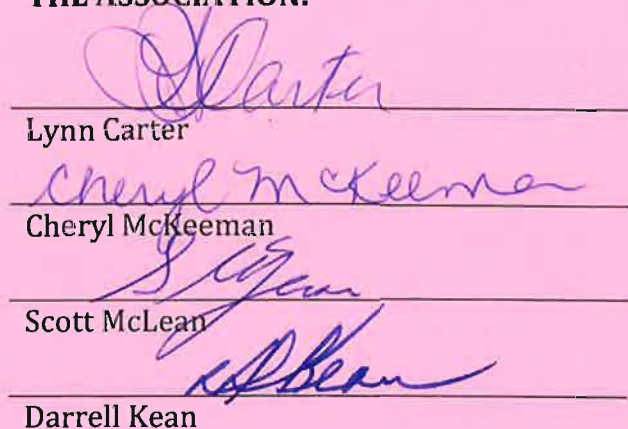 THE ASSOCIATION:
Carter
Lynn Carter
Cheryl McKeeman
Cheryl McKeeman
Scott McLean
Darrell Kean